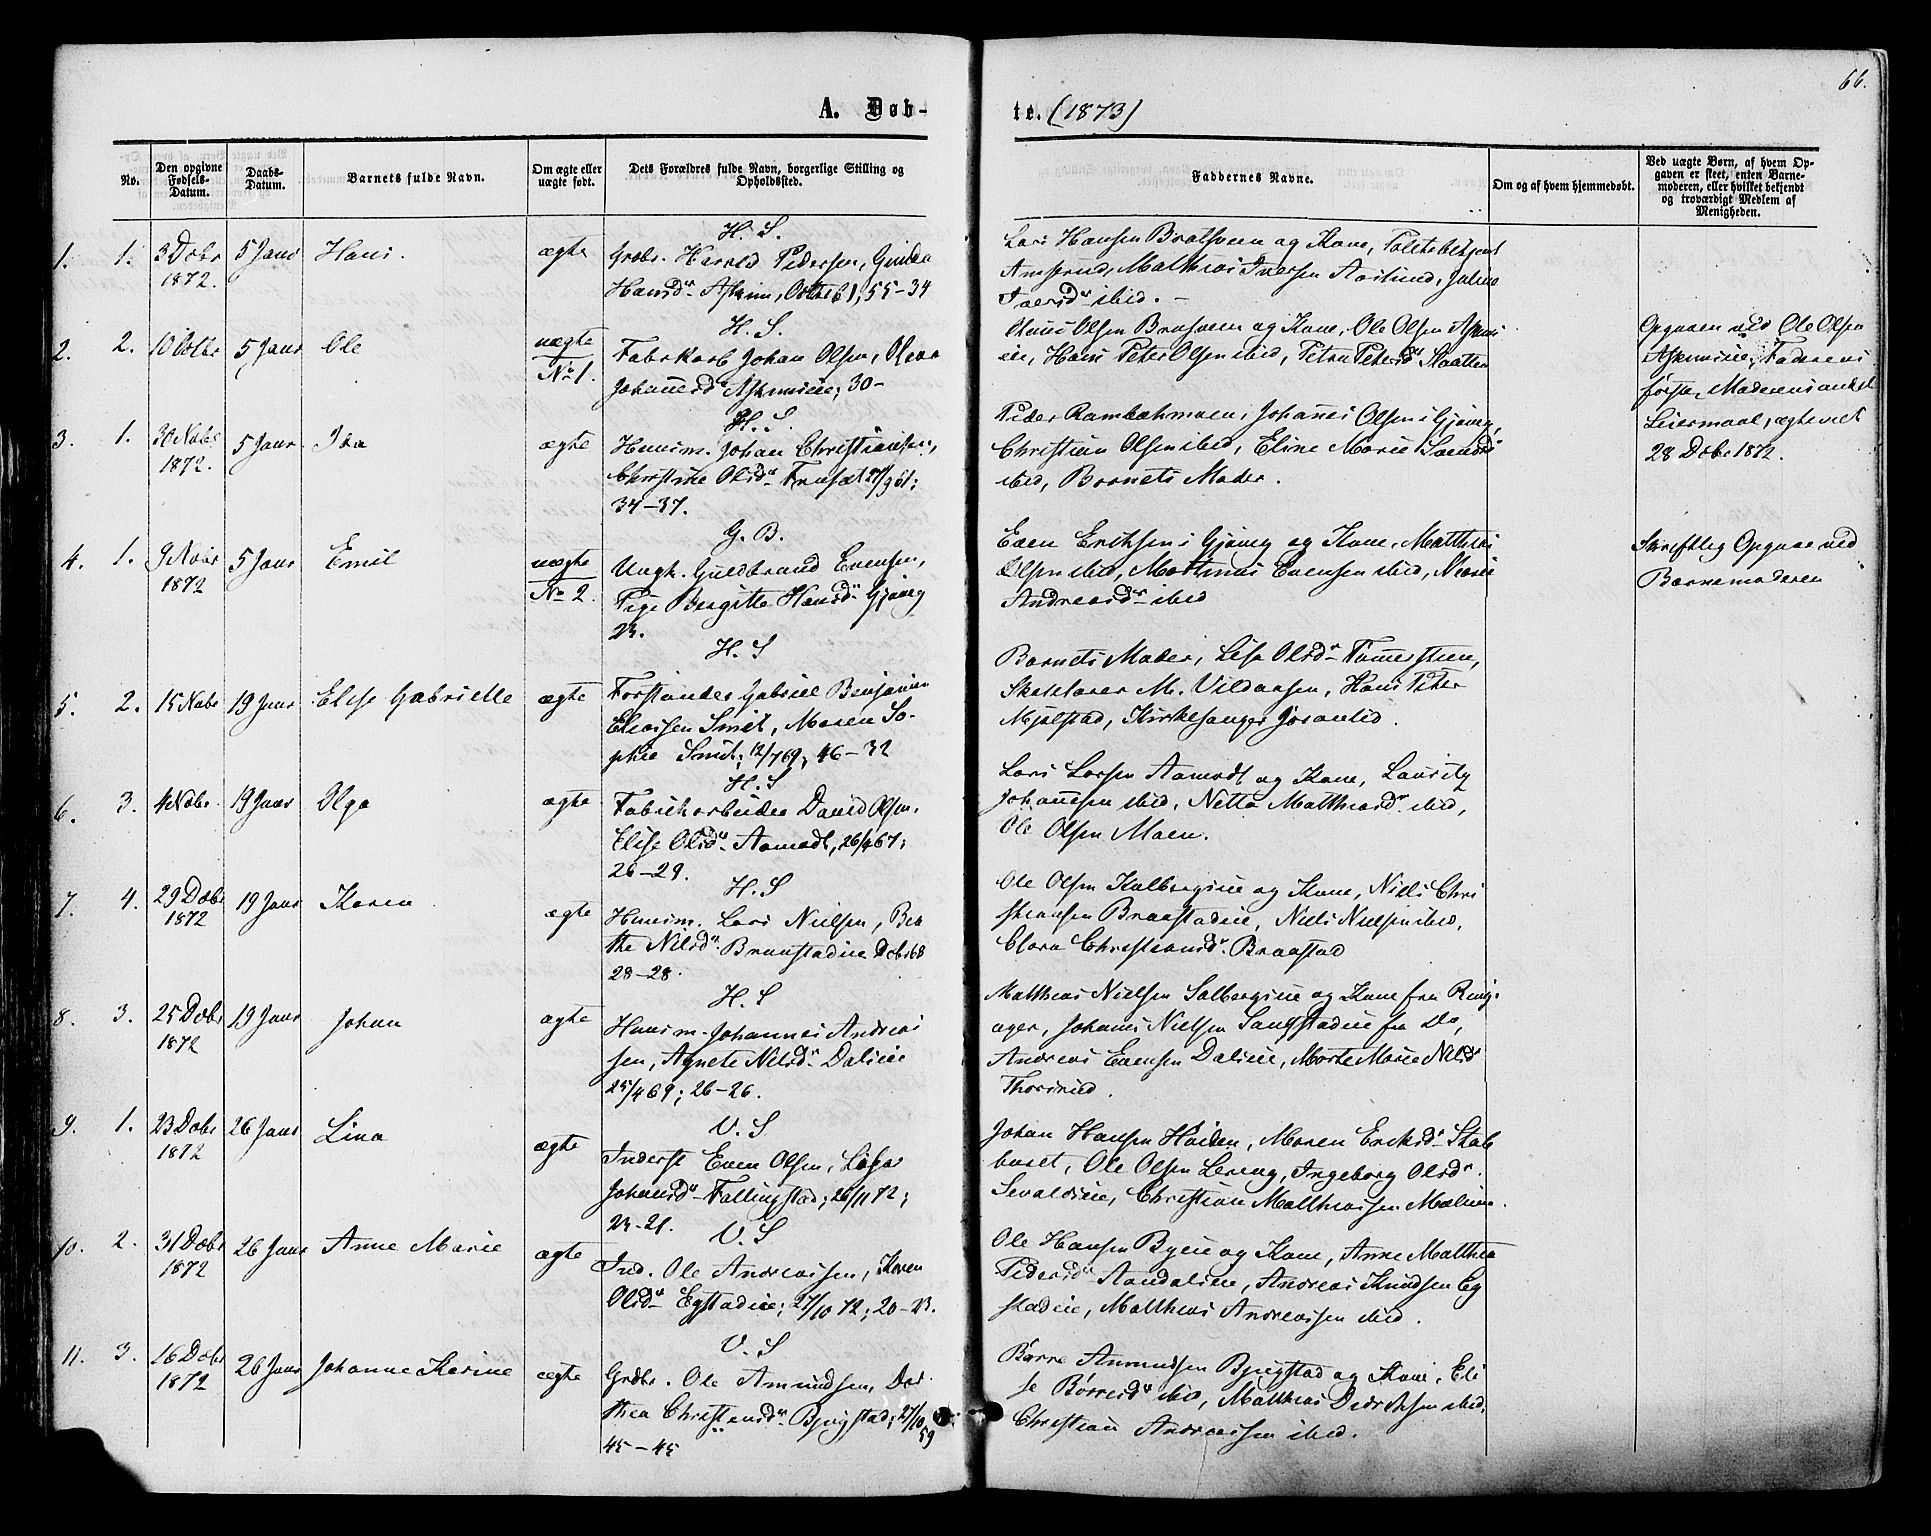 66.
A. Døb-
te. (1873)
No.
Den opgivne Fødsels-Datum.
Daabs-Datum.
Barnets fulde Navn.
Om ægte eller uægte født.
Dets Forældres fulde Navn, borgerlige Stilling og Opholdssted.
Faddernes Navne.
Om og af hvem hjemmedøbt.
Ved uægte Børn, af hvem Opgaven er skeet, enten Barnemoderen, eller hvilket bekjendt og troværdigt Medlem af Menigheden.
1. 1. 3 Dcbr 1872. 5 Janr Hans. ægte
H. S.
Grdbr. Harald Pedersen, Gunda
Hansdr Askim, 61; 55-34
Lars Hansen Braastveen og Kone,
Amsrud, Matthias Iversen Aaslund, Juline
Iversdr ibid.
2. 2. 10 Octbr 5 Janr Ole uægte No 1.
H. S.
Fabrkarb Johan Olsen, Olena
Johannesdr Askimseie; 30-
Olsen Brusveen og Kone, Ole Olsen Askims
eie, Hans Peter Olsen ibid, Petra Petersdr Staatten
Opgaven ved Ole Olsen
Askimseie, Faderens
første, Moderens andet
Leiermaal, ægteviet
28 Dcbr 1872.
3. 1. 30 Novbr 1872. 5 Janr Ida ægte
H. S.
Huusm. Johan Christiansen,
Christine Olsdr Fruset 27/9 61;
34-37.
Peder Rambækmoen, Johannes Olsen i Gjøvig,
Christian Olsen ibid, Eline Marie Svendsdr
ibid, Barnets Moder.
4. 1. 9 Novbr 1872 5 Janr Emil uægte No 2.
G. B.
Ungk. Guldbrand Evensen,
Pige Bergitte Hansdr Gjøvig
23.
Even Eriksen i Gjøvig og Kone, Matthias
Olsen ibid, Mathias Evensen ibid, Marie
Andreasdr ibid
Skriftlig Opgave ved
Barnemoderen
5. 2. 15 Novbr 19 Janr Elise Gabrielle ægte
H. S
Forstander Gabriel Benjamin
Eliasen Smit, Maren So-
phie Smit; 12/7 69; 46-32
Barnets Moder, Lisa Olsdr Tømersteen,
Skolelærer M. Vildaasen, Hans Peter
Mjølstad, Kirkesanger Jøranlid.
6. 3. 4 Novbr. 19 Janr Olga ægte
H. S
Fabrikarbeider David Olsen,
Elise Olsdr Aamodt, 26/4 67;
26-29.
Lars Larsen Aamodt og Kone, Lauritz
Johannesen ibid, Netta Matthiasdr ibid,
Ole Olsen Moen.
7. 4. 29 Dcbr 1872 19 Janr Karen ægte
H. S
Huusm. Lars Nielsen, Bea
the Nilsdr Braastadeie Dcbr 68
28-28.
Ole Olsen Kalbergeie og Kone, Niels Chri
stiansen Braastadeie, Niels Nielsen ibid,
Clara Christiansdr Braastad
8. 3. 25 Dcbr 1872 19 Janr Johan ægte
H. S
Huusm. Johannes Andreas
sen, Agnete Nilsdr Daleie
25/4 69; 26-26.
Matthias Nielsen Solbergeie og Kone fra Ring-
ager, Johannes Nielsen Sangstadeie fra Do,
Andreas Evensen Daleie, Marte Marie Nilsdr
Thorsrud.
9. 1. 23 Dcbr 1872 26 Janr Lina ægte
V. S
Inderst Even Olsen, Lisa
Johansdr Fallingstad; 26/11 72;
23-21.
Johan Hansen Høiden, Maren Eriksdr Stab
buset, Ole Olsen Lereng, Ingeborg Olsdr
Sevaldeie, Christian Matthiassen Mæleie.
10. 2. 31 Dcbr 1872 26 Janr Anne Marie ægte
V. S
Ind. Ole Andreassen, Karen
Olsdr Egstadeie; 27/10 72; 20-23.
Ole Hansen Byeie og Kone, Anne Matthea
Pedersdr Aandaleie, Andreas Knudsen Eg
stadeie, Matthias Andreassen ibid.
11. 3. 16 Dcbr 1872 26 Janr Johanne Karine ægte
V. S
Grdbr. Ole Amundsen, Dor
thea Christensdr Bjugstad; 27/10 59
45-45
Børre Amundsen Bjugstad og Kone, Eli
se Børresdr ibid, Matthias Didriksen ibid,
Christian Andreassen ibid.